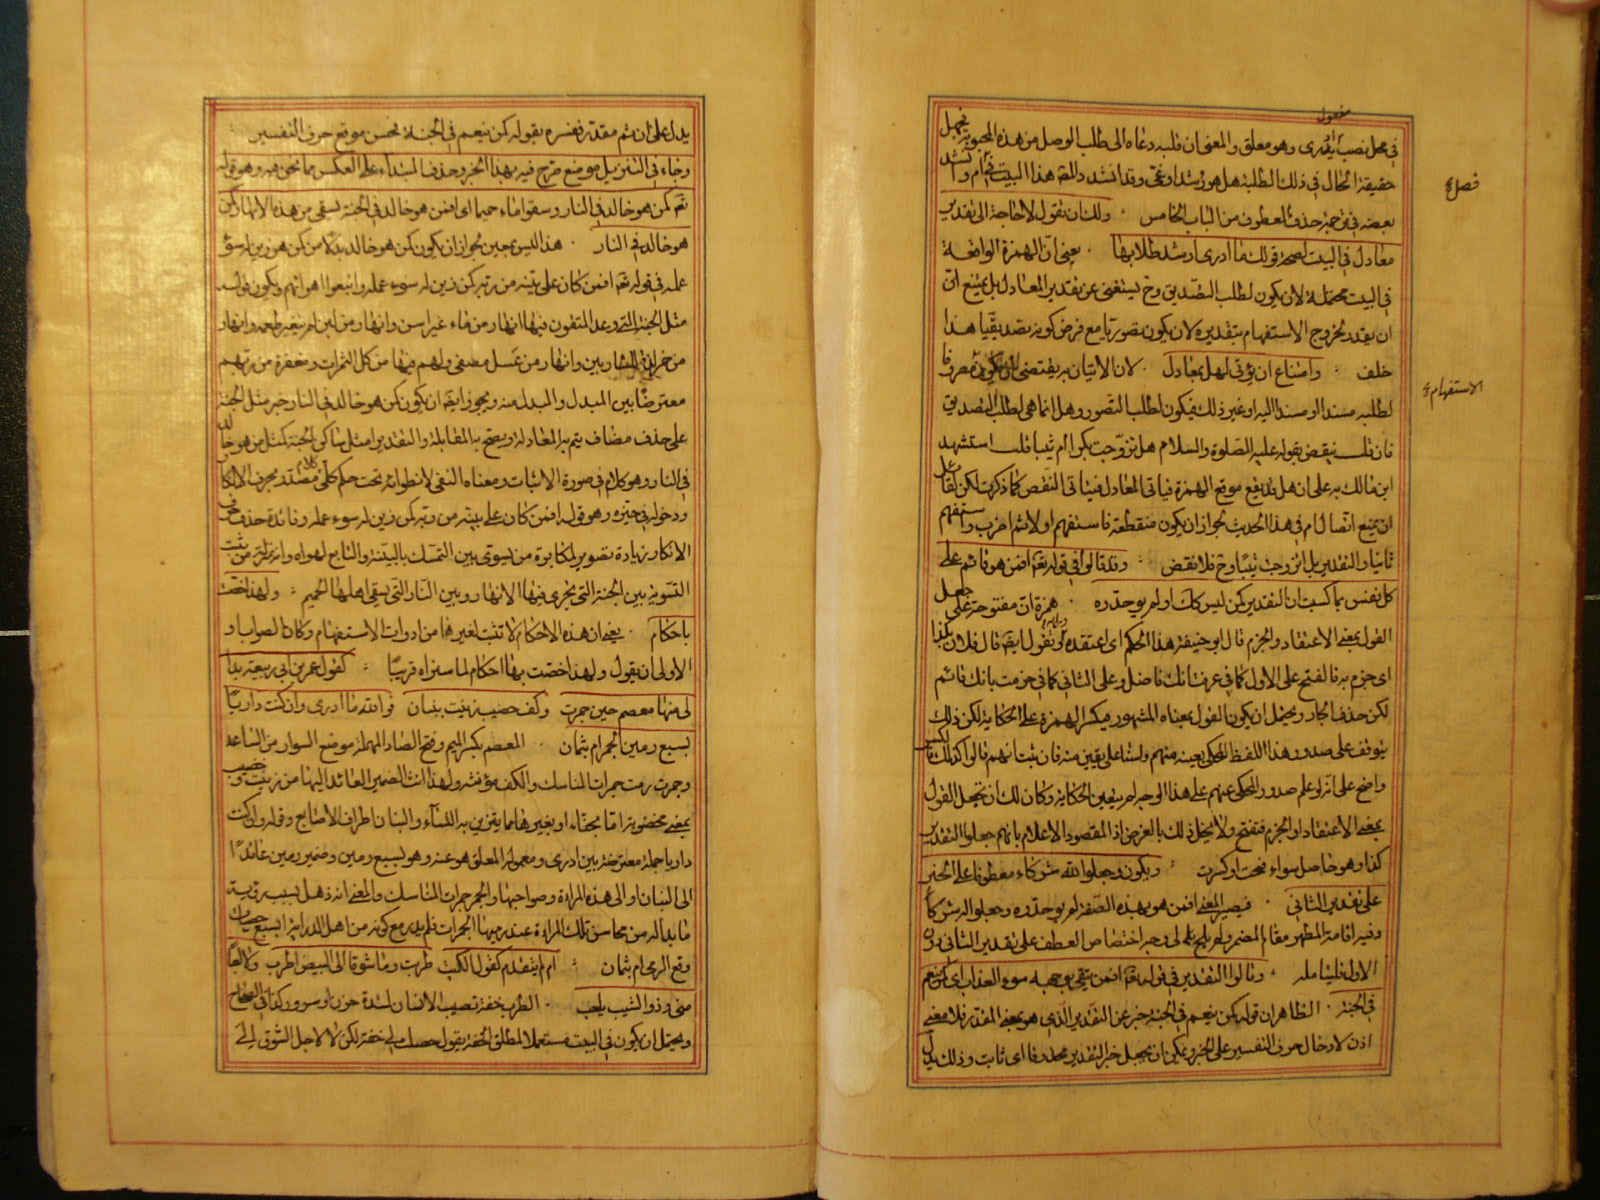 مفعول
في محل نصب بأدري وهو معلق والمعنى ان قلبه دعاه الى طلب الوصل من هذه المحبوبة بجهل
حقيقة الحال في ذلك الطلبة هل هو رشد او غي وقد انشد المص هذا البيت في ام وانشد
فصل
بعضه في ترجمة حذف المعطوف من الباب الخامس ولك ان تقول لا حاجة الى تقدير
معادل في البيت لصحة قولك ما أدري أرشد طلابها يعني ان الهمزة الواقعة
في البيت محتملة لان يكون لطلب التصديق وح يستغنى عن تقدير المعادل بل يمتنع
ان يقدر لخروج الاستفهام بتقديره لان يكون تصوريا مع فرض كونه تصديقيا هذا
خلف وامتناع ان يؤتى لهل بمعادل لان الاتيان به يقتضي
الاستفهام
لطلبه مسندا او مسندا اليه او غير ذلك فيكون لطلب التصور وهل انما هي لطلب التصديق
فان قلت ينقض بقوله عليه الصلوة والسلام هل تزوجت بكرا أم ثيبا قلت استشهد
ابن مالك به على ان هل قد يقع موقع الهمزة فياتي المعادل فيتاتى النقض كما ذكرت لكن لقائل
ان يمنع اتصال ام في هذا الحديث لجواز ان يكون منقطعة فاستفهم اولا ثم اضرب واستفهم
ثانيا والتقدير بل أتزوجت ثيبا وح فلا نقض وقد قالوا في قوله تعه افمن هو قائم على
كل نفس بما كسبت ان التقدير كمن ليس كذلك او لم يوحدوه همزة ان مفتوحة على جعل
القول بمعنى الاعتقاد والجزم قال ابو حنيفة هذا الحكم اي اعتقده وتقول ايضا قال فلان بكذا
اي جزم به فالفتح على الاول كما في عرفت انك فاضل وعلى الثاني كما في جزمت بانك قائم
لكن حذف الجار ويحتمل ان يكون القول بمعناه المشهور فيكسر الهمزة على الحكاية لكن ذلك
يتوقف على صدور هذا اللفظ المحكي بعينه منهم ولسنا على يقين منه فان ثبت انهم قالوا كذلك
واضح على انه لو علم صدور المحكي عنهم على هذا الوجه لم يتعين الحكاية وكان لك ان تجعل القول
بمعنى الاعتقاد او الجزم فتفتح ولا يخل ذلك بالغرض اذ المقصود الاعلام بانهم جعلوا التقدير
كذا وهو حاصل سواء فتحت او كسرت ويكون وجعلوا لله شركاء معطوفا على الخبر
على تقدير الثاني فيصير المعنى افمن هو بهذه الصفة لم يوحدوه وجعلوا له شركاء
وفيه اقامة المظهر مقام المضمر ولم يلح لي وجه اختصاص العطف على تقدير الثاني دون
الاول فليتامله وقالوا التقدير في قوله تعه افمن يتقي بوجهه سوء العذاب اي كمن ينعم
في الجنة الظاهر ان قوله كمن ينعم في الجنة خبر عن التقدير الذي هو بمعنى المقدر فلا معنى
اذن لادخال حرف التفسير على الخبر ويمكن ان يجعل خبر التقدير محذوفا اي ثابت وذلك يدل
يدل على ان ثم مقدر ففسره بقوله كمن ينعم في الجنة فحسن موقع حرف التفسير
وجاء في التنزيل موضع صرح فيه بهذا الخبر وحذف المبتداء على العكس مما نحن فيه وهو قوله
تعه كمن هو خالد في النار وسقوا ماء حميما اي افمن هو خالد في الجنة يسقى من هذه الانهار كمن
هو خالد في النار هذا ليس بمتعين لجواز ان يكون كمن هو خالد بدلا من كمن هو زين له سوء
عمله في قوله تعه افمن كان على بينة من ربه كمن زين له سوء عمله واتبعوا اهوائهم ويكون قوله
مثل الجنة التي وعد المتقون فيها انهار من ماء غير اسن وانهار من لبن لم يتغير طعمه وانهار
من خمر لذة للشاربين وانهار من عسل مصفى ولهم فيها من كل الثمرات ومغفرة من ربهم
معترضا بين المبدل والمبدل منه ويجوز ايضا ان يكون كمن هو خالد في النار خبر مثل الجنة
على حذف مضاف يتم به المعادلة ويصح به المقابلة والتقدير امثل ساكن الجنة كمثل من هو خالد
في النار وهو كلام في صورة الاثبات ومعناه النفي لانطوائه تحت حكم كلام مصدر بحرف الانكار
ودخوله في حيزه وهو قوله افمن كان على بينة من ربه كمن زين له سوء عمله وفائدة حذف حرف
الانكار زيادة تصوير لمكابرة من يسوي بين التمسك بالبينة والتابع لهواه وانه بمنزلة من يثبت
التسوية بين الجنة التي تجري فيها الانهار وبين النار التي يسقى اهلها الحميم ولهذا اختصت
باحكام يعني ان هذه الاحكام لا تثبت لغيرها من ادوات الاستفهام وكان الصواب او
الاولى ان يقول ولهذا اختصت بها احكام لما ستراه قريبا كقول عمر بن ابي ربيعة بدا
لي منها معصم حين جمرت وكف خضيب زينت ببنان فوالله ما ادري وان كنت داريا
بسبع رمين الجمر ام بثمان المعصم بكسر الميم وفتح الصاد المهملة موضع السوار من الساعد
وجمرت رمت جمرات المناسك والكف مؤنثة ولهذا انث الضمير العائد اليها من زينت وخضيب
بمعنى مخضوبة اما بحناء او بغيرها مما يتزين به النساء والبنان اطراف الاصابع وقوله وان كنت
داريا جملة معترضة بين ادري ومعموله المعلق هو عنه وهو بسبع رمين وضمير رمين عائد
الى البنان او الى هذه المراءة وصواحبها والجمر جمرات المناسك والمعنى انه ذهل بسبب رؤية
ما بدا له من محاسن تلك المراءة عند رميها الجمرات فلم يدر مع كونه من اهل الدراية ابسبع حصيات
وقع الرمي ام بثمان ام لم يتقدم كقول الكميت طربت وما شوقا الى البيض اطرب ولا لعبا
مني وذو الشيب يلعب الطرب خفة تصيب الانسان لشدة حزن او سرور كذا في الصحاح
ويحتمل ان يكون في البيت مستعملا لمطلق الخفة يقول حصلت لي خفة لكن لا لاجل الشوق الى